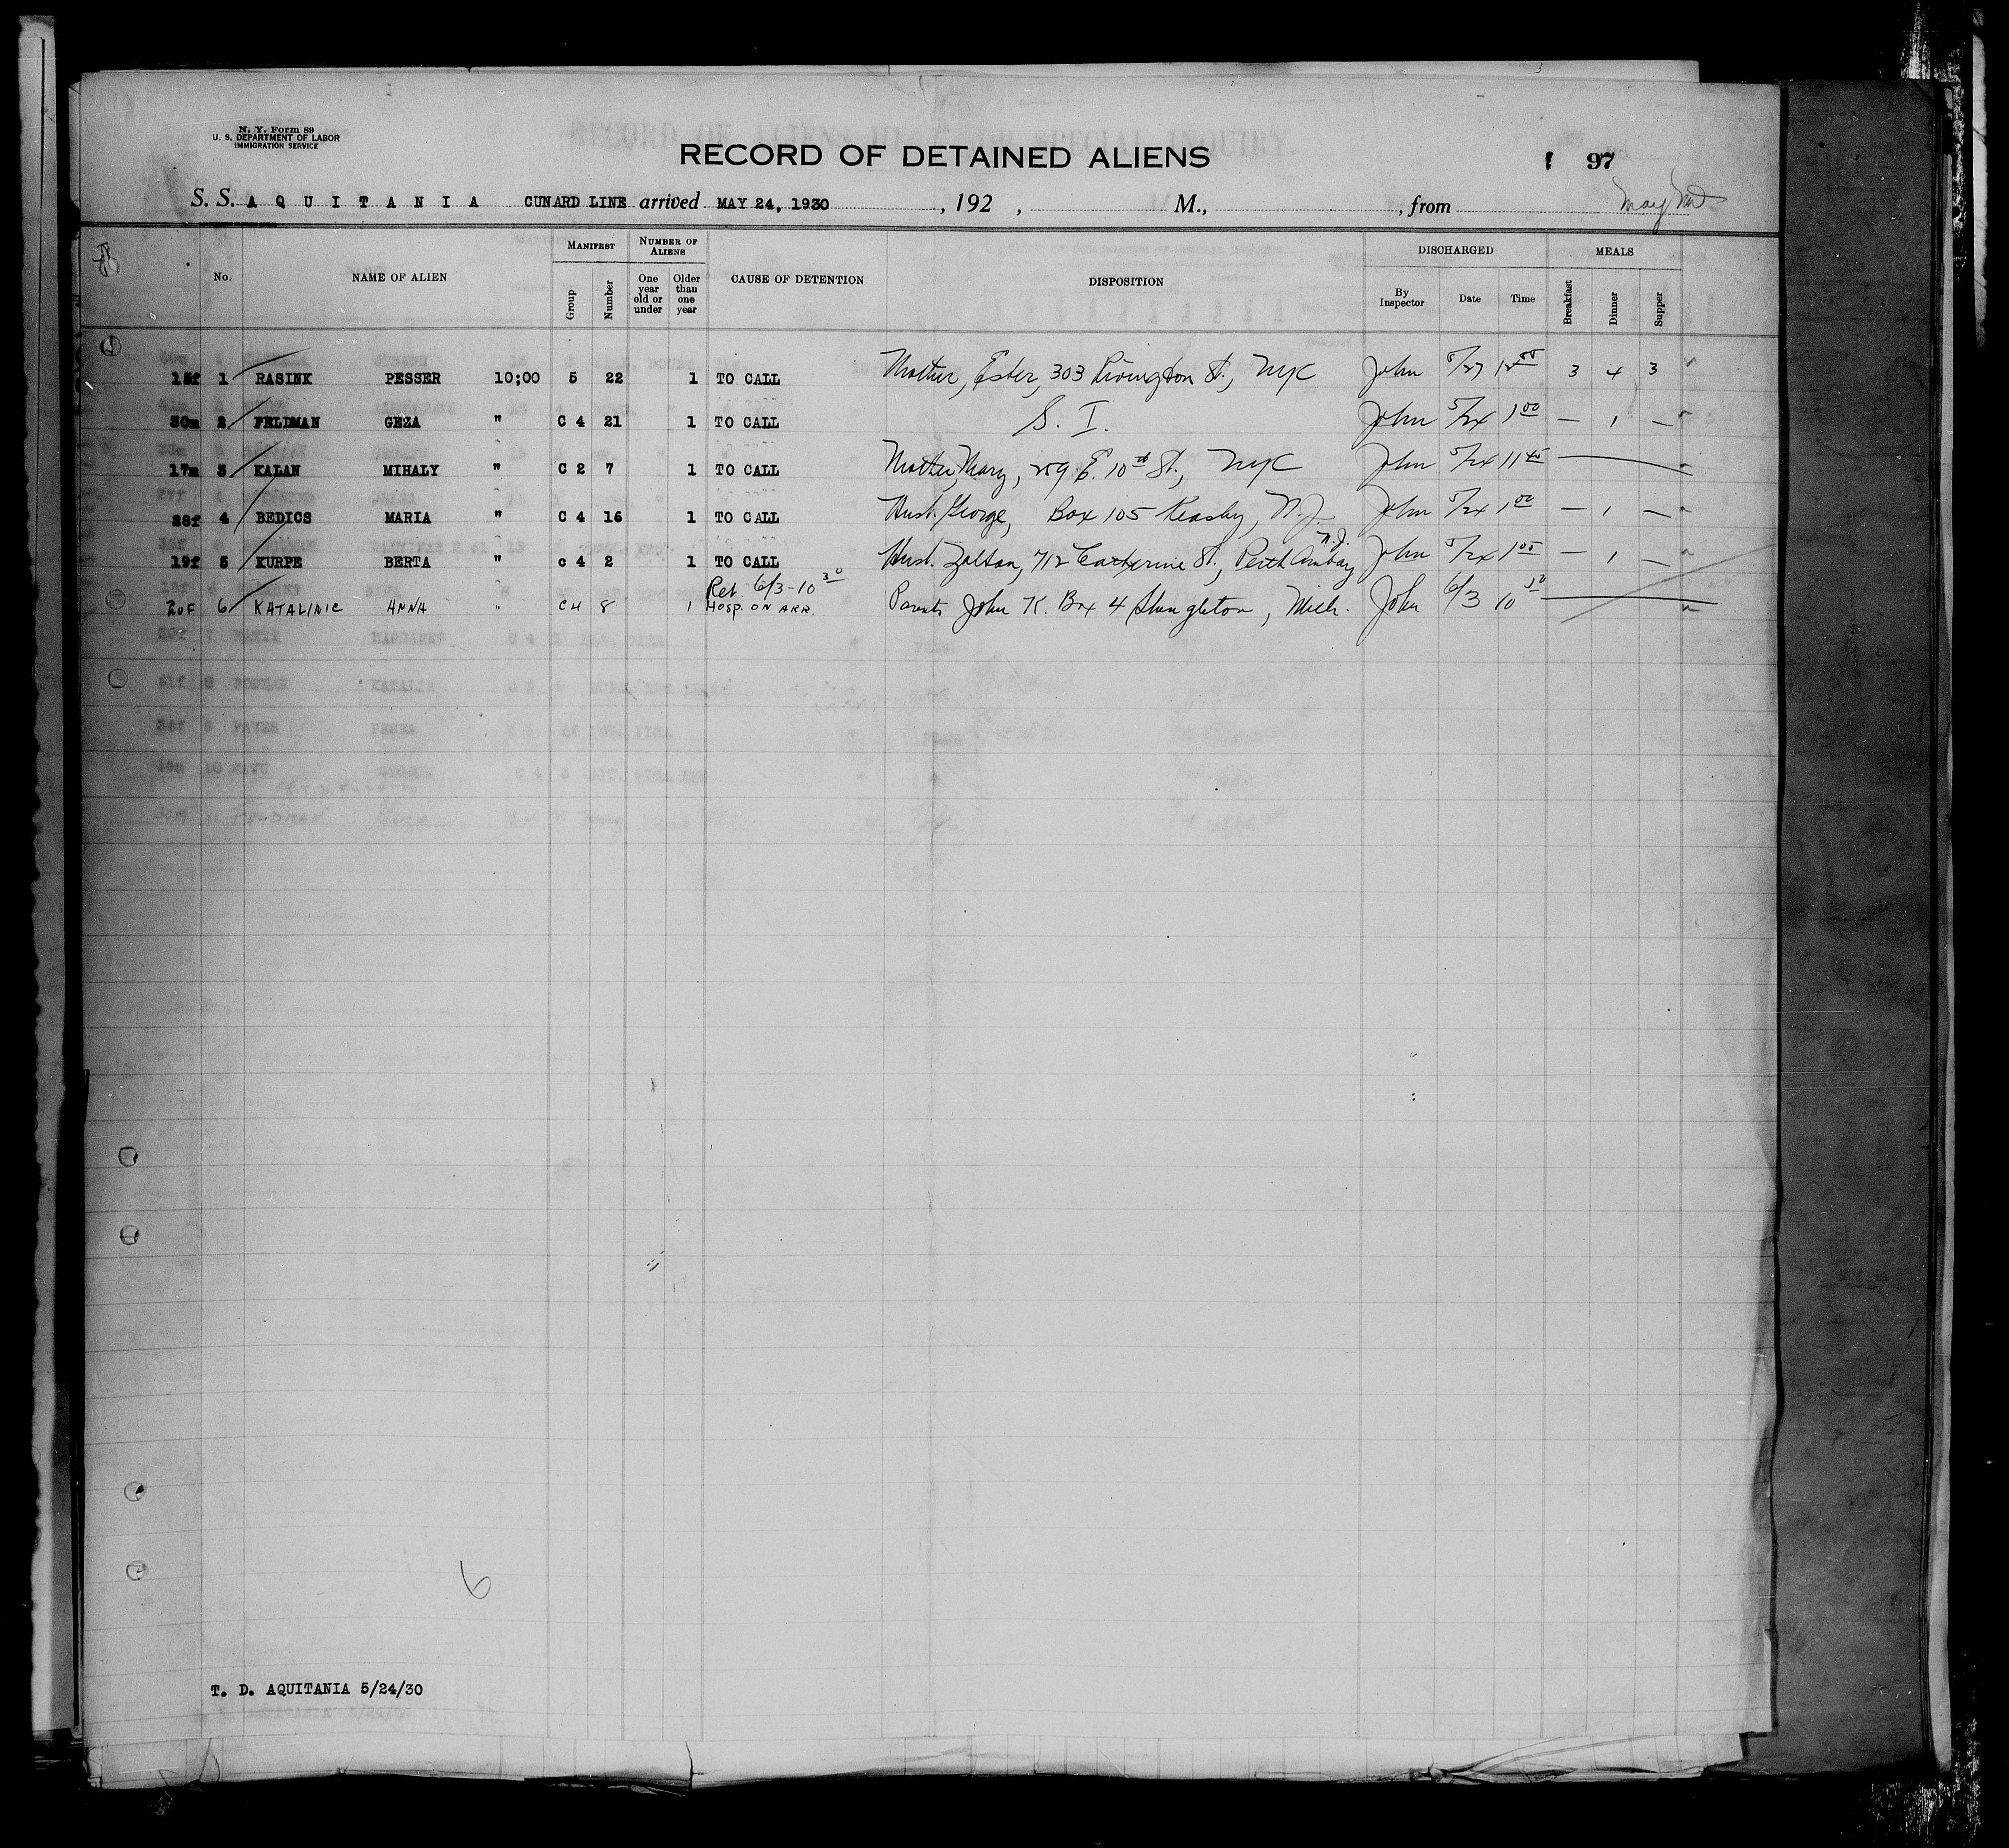 N. Y. Form 89
U. S. DEPARTMENT OF LABOR
IMMIGRATION SERVICE
RECORD OF DETAINED ALIENS
97
S. S. A Q U I T A N I A CUNARD LINE arrived MAY 24, 1930 , 192 , M., , from
No. NAME OF ALIEN MANIFEST Group Number NUMBER OF ALIENS One year old or under Older than one year CAUSE OF DETENTION DISPOSITION DISCHARGED By Inspector Date Time MEALS Breakfast Dinner Supper
15f 1 RASINK PESSER 10;00 5 22 1 TO CALL Mother, Ester, 303 Rivington St., NYC John 5/27 12 00 3 4 3
30m 2 FELDMAN GEZA " C 4 21 1 TO CALL S. I. John 5/24 1 00 — 1 —
17m 3 KALAN MIHALY " C 2 7 1 TO CALL Mother, Mary, 259 E. 10th St., NYC John 5/24 11 45
28f 4 BEDICS MARIA " C 4 16 1 TO CALL Husb. George, Box 105 Keasby, N.J. John 5/24 1 00 — 1 —
19f 5 KURPE BERTA " c 4 2 1 TO CALL Husb. Zoltan, 712 Catherine St., Perth Amboy N.J. John 5/24 1 05 — 1 —
Ret. 6/3-10 30
20F 6 KATALINIC ANNA " C4 8 1 HOSP. ON ARR. Parents John K. Box 4 Shingleton, Mich. John 6/3 10 30
6
T. D. AQUITANIA 5/24/30